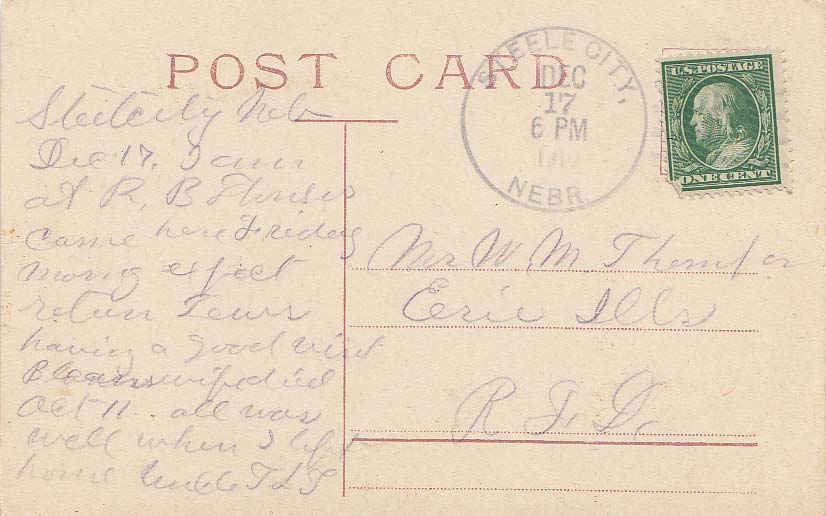 POST CARD
STEELE CITY,
DEC
17
6 PM
1910
NEBR.
U.S. POSTAGE
ONE CENT
Steelecity Neb
Dec 17. I am
at R, B
came here Friday
morng expect
return
having a good visit
wife died
Oct 11. all was
well when I left
home Uncle T L T
Mr W M
Erie Ills
R F D